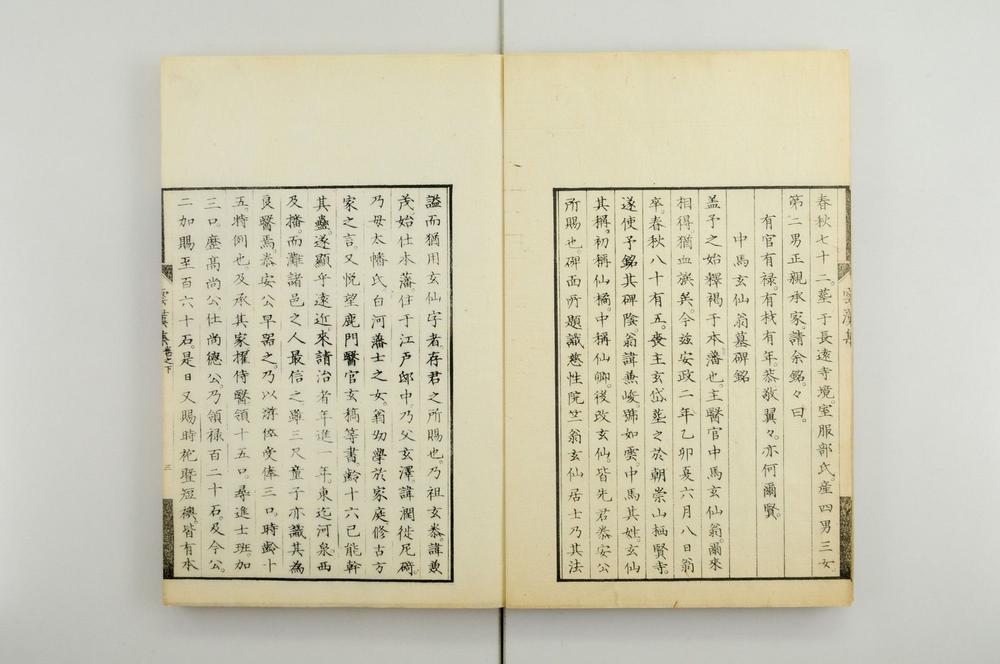 春秋七十二。墓于長遠寺境。室服部氏。産四男三女。
第二男正親承家。請余銘。々曰。
有官有禄。有栻有年。恭敬翼々。亦何爾賢。
中馬玄仙翁墓碑銘
盖予之始釋褐于本藩也主醫官中馬玄仙翁。爾來
相得猶血族矣。今玆安政二年乙卯夏六月八日翁
卒。春秋八十有五。喪主玄岱塟之於朝崇山栖賢寺。
遂使予銘其碑陰。翁諱兼峻。號如雲。中馬其姓。玄仙
其稱。初稱仙橘。中稱仙卿。後改玄仙。皆先君泰安公
所賜也。碑面所題識慈性院竺翁玄仙居士乃其法
謚而猶用玄仙字者存君之所賜也。乃祖玄泰。諱兼
茂始仕本藩住于江戸邸中。乃父玄澤。諱潤徙尼﨑。
乃母太幡氏。白河藩士之女。翁幼學於家庭修古方
家之言。又悦望鹿門醫官玄稿等書。齢十六已能幹
其蠱。遂顯乎遠近。來請治者年進一年。東迄河泉。西
及播。而灘諸邑之人最信之。雖三尺童子亦識其為
良醫焉。泰安公早噐之。乃以游倅受俸三口。時齢十
五。特例也。及承其家擢侍醫領十五口。尋進士班。加
三口。歷髙尚公仕尚德公。乃領禄百二十石。及今公。
二加賜至百六十石。是日又賜時袍曁短襖。皆有本
雲漢集
雲漢集 巻之下
三